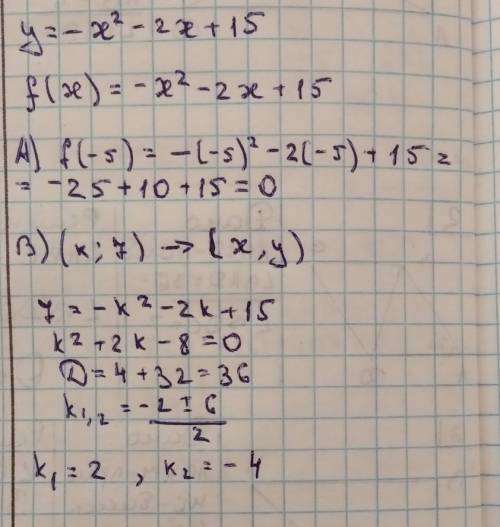 y = -x² - 2x + 15
f(x) = -x² - 2x + 15
A) f(-5) = -(-5)² - 2(-5) + 15 =
= -25 + 10 + 15 = 0
B) (k; 7) → (x, y)
7 = -k² - 2k + 15
k² + 2k - 8 = 0
D = 4 + 32 = 36
k₁,₂ = -2 ± 6
2
k₁ = 2 , k₂ = -4